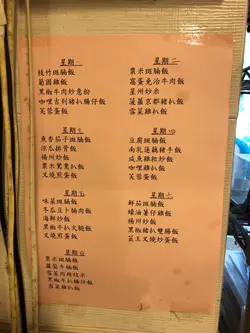 星期一
枝竹斑腩飯
葡國雞飯
黑椒牛肉炒意粉
咖哩吉列豬扒腸仔飯
芙蓉蛋飯
星期二
粟米斑腩飯
窩蛋免治牛肉飯
星州炒米
菠蘿京都豬扒飯
雪菜雞扒飯
星期三
魚香茄子斑腩飯
涼瓜排骨飯
揚州炒飯
粟米鴛鴦扒飯
叉燒煎蛋飯
星期四
豆腐斑腩飯
南乳蓮藕豬手飯
咸魚雞粒炒飯
咖哩牛肉飯
芙蓉蛋飯
星期五
味菜斑腩飯
冬瓜豆卜腩肉飯
海鮮炒飯
黑椒牛扒叉腿飯
叉燒煎蛋飯
星期六
鮮茄斑腩飯
蠔油薯仔雞飯
揚州炒飯
黑椒豬扒雙腸飯
豉王叉燒炒蛋飯
星期日
粟米斑腩飯
蘿蔔牛腩飯
雪菜肉絲炆米
黑椒牛扒腸仔飯
雪菜雞扒飯